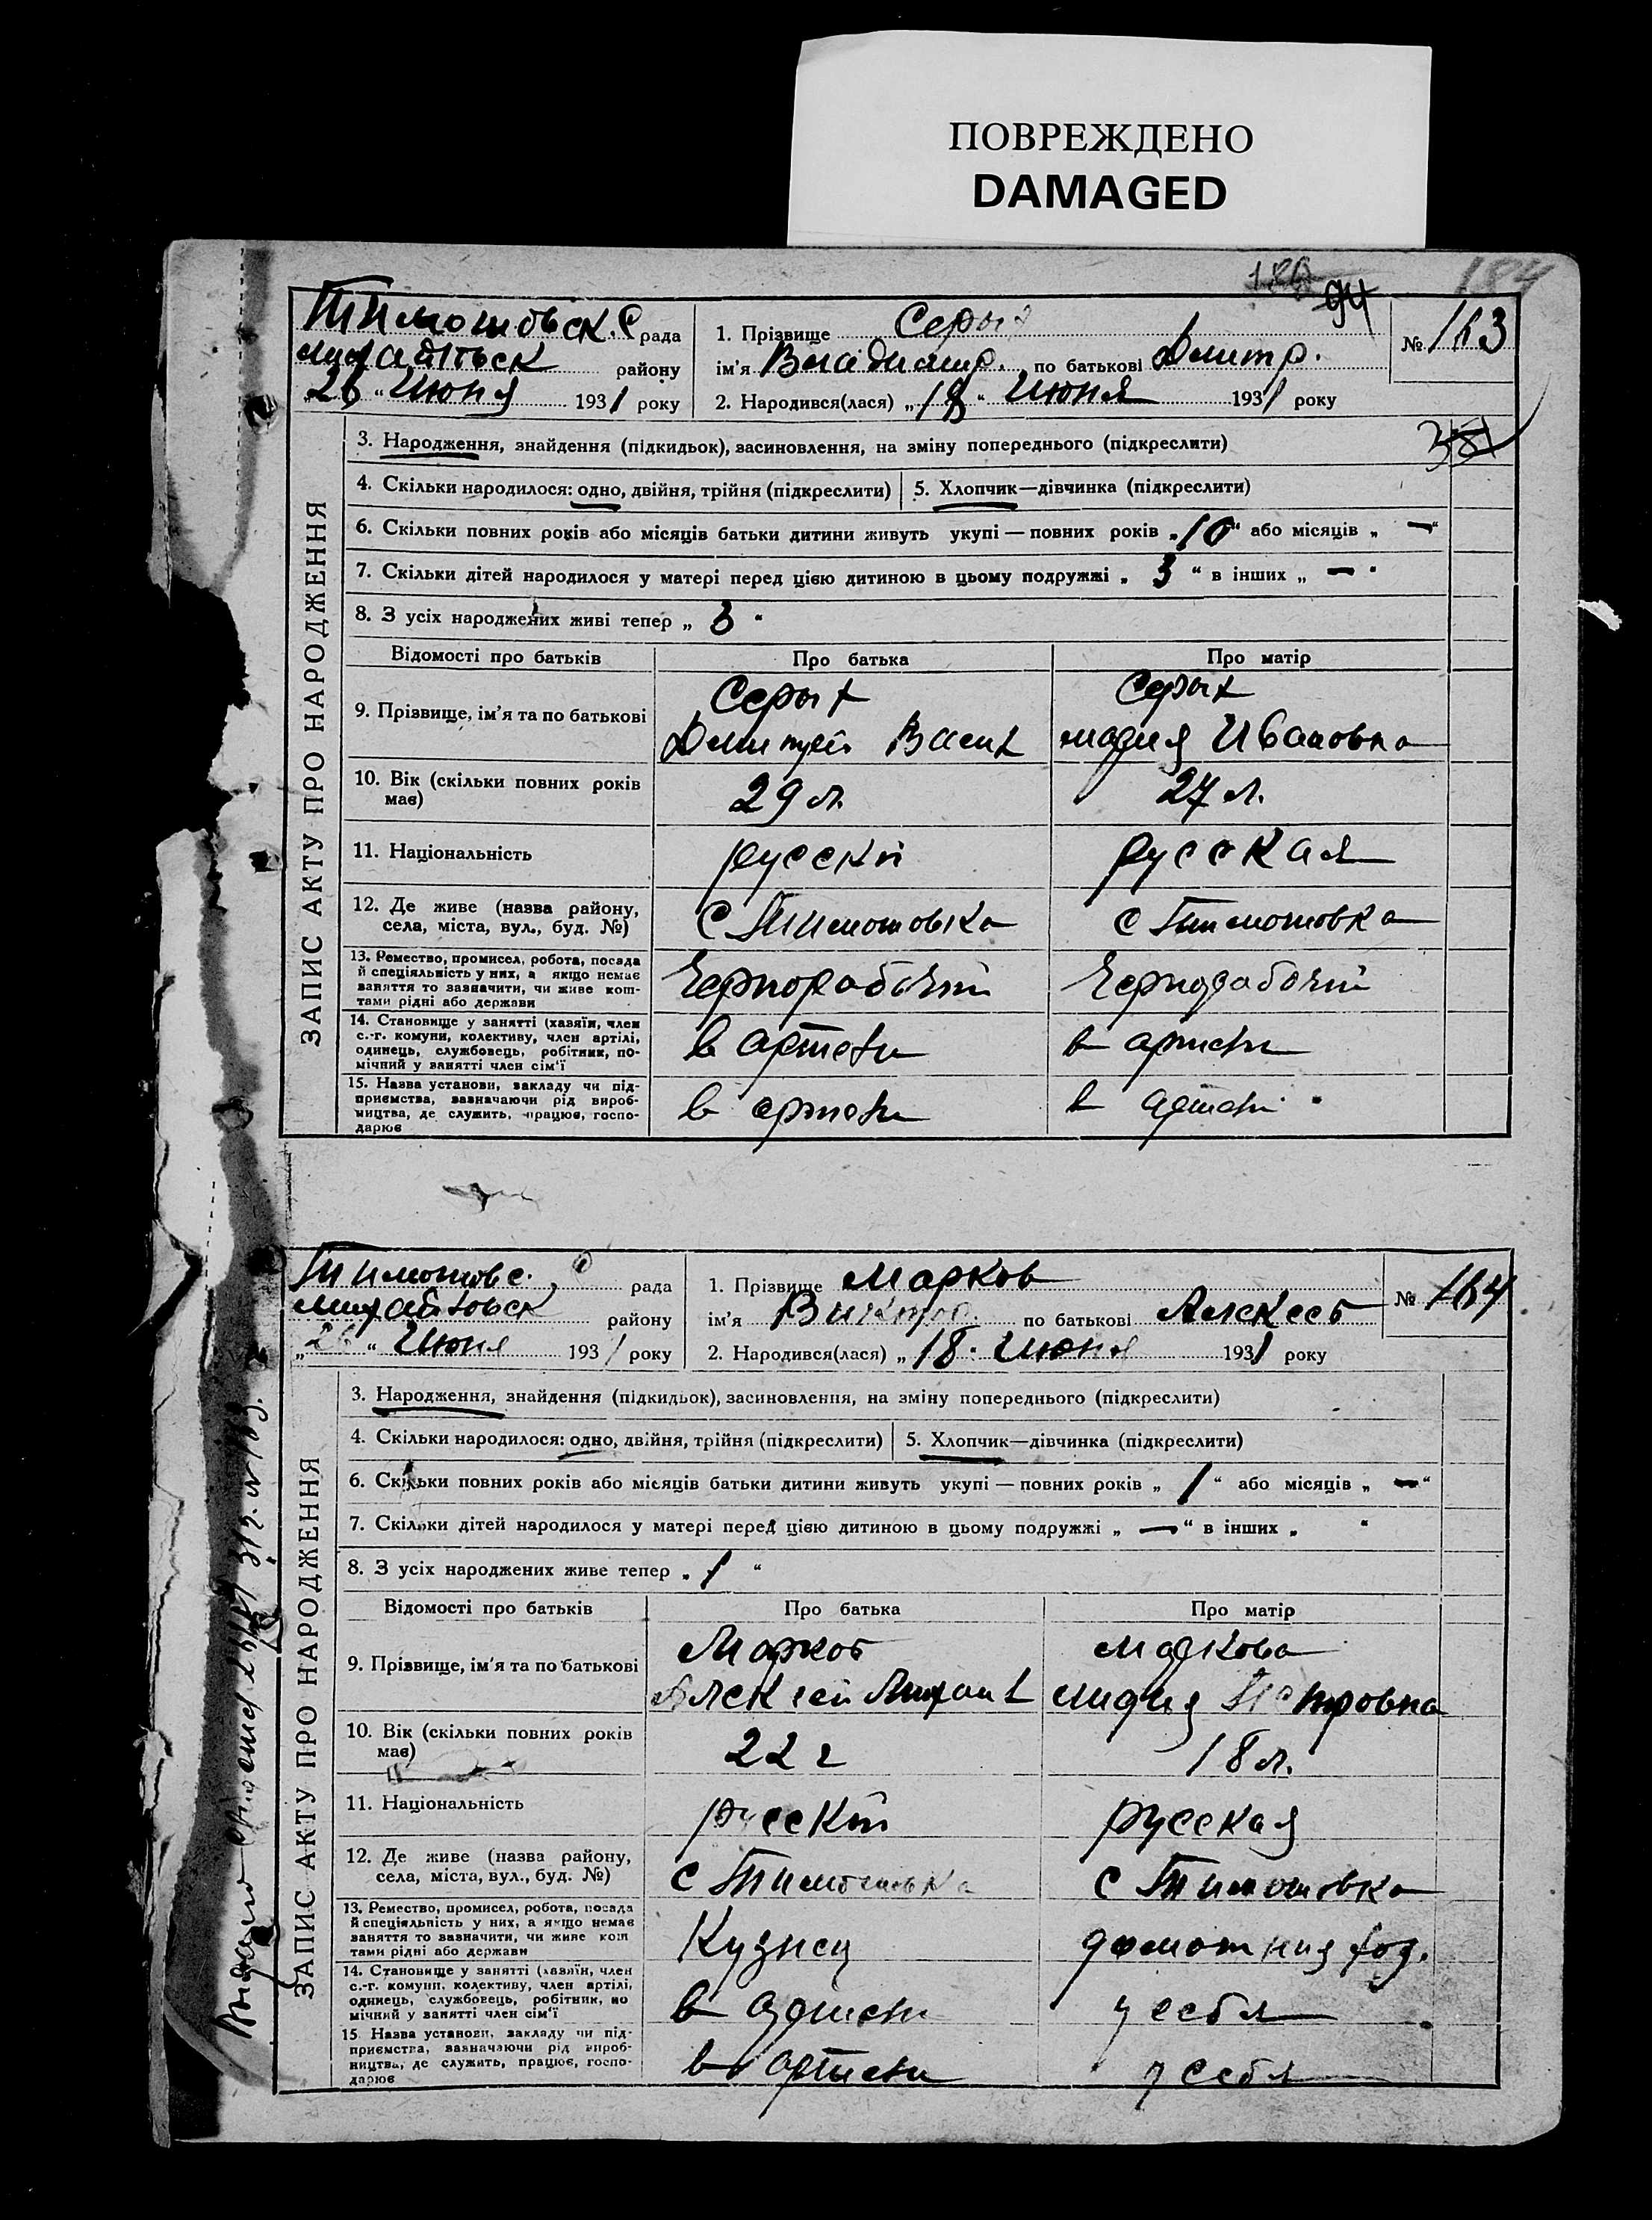 ПОВРЕЖДЕНО
DAMAGED
184
94
Тимошовск. С рада
району
26 “ Июня 1931 року
1. Прізвище Серых
ім'я Владимир. по батькові Дмитр.
2. Народився(лася) „18“ Июня 1931 року
№ 163
ЗАПИС АКТУ ПРО НАРОДЖЕННЯ
3. Народження, знайдення (підкидьок), засиновлення, на зміну попереднього (підкреслити)
4. Скільки народилося: одно, двійня, трійня (підкреслити) 5. Хлопчик—дівчинка (підкреслити)
6. Скільки повних років або місяців батьки дитини живуть укупі — повних років „10“ або місяців „ — “
7. Скільки дітей народилося у матері перед цією дитиною в цьому подружжі „ 3 “ в інших „ — “
8. З усіх народжених живі тепер „ 3 “
Відомості про батьків Про батька Про матір
9. Прізвище, ім'я та по батькові Серых Серых
Дмитрий Васил Мария Ивановна
10. Вік (скільки повних років має) 29 л. 27 л.
11. Національність русский русская
12. Де живе (назва району, села, міста, вул., буд. №) С Тимошовка С Тимошовка
13. Ремество, промисел, робота, посада й спеціяльність у них, а якщо немає заняття то зазначити, чи живе коштами рідні або держави Чернорабочий Чернорабочий
14. Становище у занятті (хазяїн, член с.-г. комуни, колективу, член артілі, одинець, службовець, робітник, помічний у занятті член сім'ї в артели в артели
15. Назва установи, закладу чи підприємства, зазначаючи рід виробництва, де служить, працює, господарює в артели в артели
Тимошовс. рада
району
„26 “ Июня 1931 року
1. Прізвище Марков
ім'я Виктор. по батькові Алексеев
2. Народився(лася) „18. Июня 1931 року
№ 164
ЗАПИС АКТУ ПРО НАРОДЖЕННЯ
3. Народження, знайдення (підкидьок), засиновлення, на зміну попереднього (підкреслити)
4. Скільки народилося: одно, двійня, трійня (підкреслити) 5. Хлопчик—дівчинка (підкреслити)
6. Скільки повних років або місяців батьки дитини живуть укупі — повних років „ 1 “ або місяців „ — “
7. Скільки дітей народилося у матері перед цією дитиною в цьому подружжі „ — “ в інших „ “
8. З усіх народжених живе тепер „ 1 “
Відомості про батьків Про батька Про матір
9. Прізвище, ім'я та по батькові Марков Маркова
Алексей Лидия Петровна
10. Вік (скільки повних років має) 22 г 18 л.
11. Національність русский русская
12. Де живе (назва району, села, міста, вул., буд. №) С Тимошовка С Тимошовка
13. Ремество, промисел, робота, посада й спеціяльність у них, а якщо немає заняття то зазначити, чи живе коштами рідні або держави Кузнец домашняя хоз.
14. Становище у занятті (хазяїн, член с.-г. комуни, колективу, член артілі, одинець, службовець, робітник, помічний у занятті член сім'ї в артели у себя
15. Назва установи, закладу чи підприємства, зазначаючи рід виробництва, де служить, працює, господарює в артели у себя